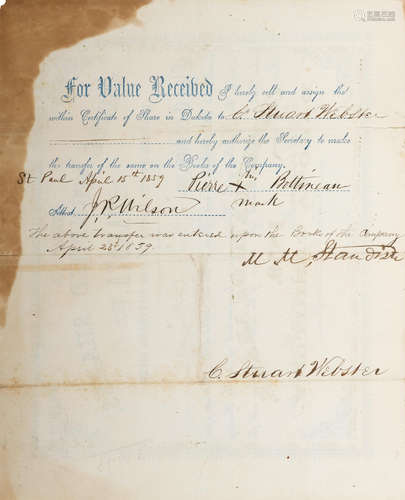 For Value Received I hereby sell and assign the
within Certificate of Share in Dakota to C. Stuart Webster
and hereby authorize the Secretary to make
the transfer of the same on the Books of the Company.
St Paul April 15th 1859 Pierre X his Bottineau
mark
Attest J. R. Wilson
The above transfer was entered upon the Books of the Company
April 25th 1859
M M, Standish
C. Stuart Webster